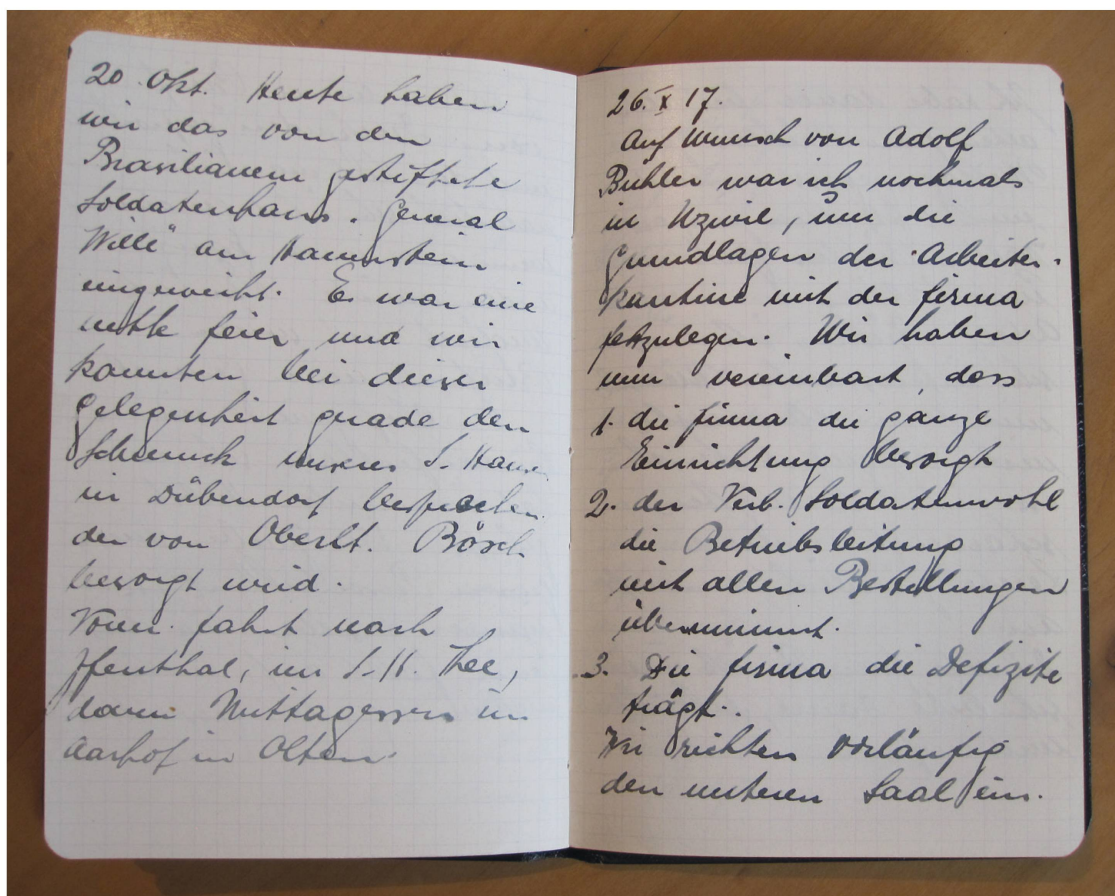 20. Okt. Heute haben
wir das von den
Brasilianern gestiftete
Soldatenhaus. General
Wille" am Hauenstein
eingeweiht. Es war eine
nette Feier und wir
konnten bei dieser
Gelegenheit gerade den
Schmuck unseres S. Hauses
in Dübendorf besprechen
der von Oberlt. Bösch
besorgt wird.
Vorm. fahrt nach
Ifenthal, im S. H. Thee,
dann Mittagessen im
Aarhof in Olten.
26. X 17.
Auf Wunsch von Adolf
Bühler war ich nochmals
in Uzwil, um die
Grundlagen der Arbeiter-
kantine mit der Firma
festzulegen. Wir haben
nun vereinbart dass
1. die Firma die ganze
Einrichtung besorgt
2. der Verb. Soldatenwohl
die Betriebsleitung
mit allen Bestellungen
übernimmt.
3. Die Firma die Defizite
trägt.
Wir richten vorläufig
den unteren Saal ein.